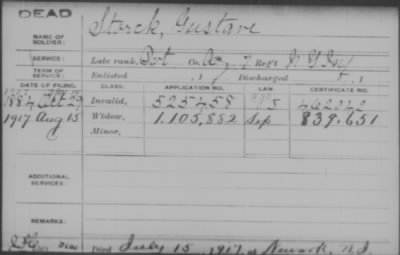 DEAD
NAME OF SOLDIER: Storck, Gustave
SERVICE: Late rank, Pvt Co. A, 7 Reg't N.Y. Inf
TERM OF SERVICE: Enlisted , 1 Discharged , 1
DATE OF FILING. CLASS. APPLICATION NO. LAW. CERTIFICATE NO.
1884 Invalid, 525458
1917 Aug 15 Widow, 1.105,882 839.651
Minor,
ADDITIONAL SERVICES:
REMARKS:
Died July 15, 1917, at Newark, N.J.